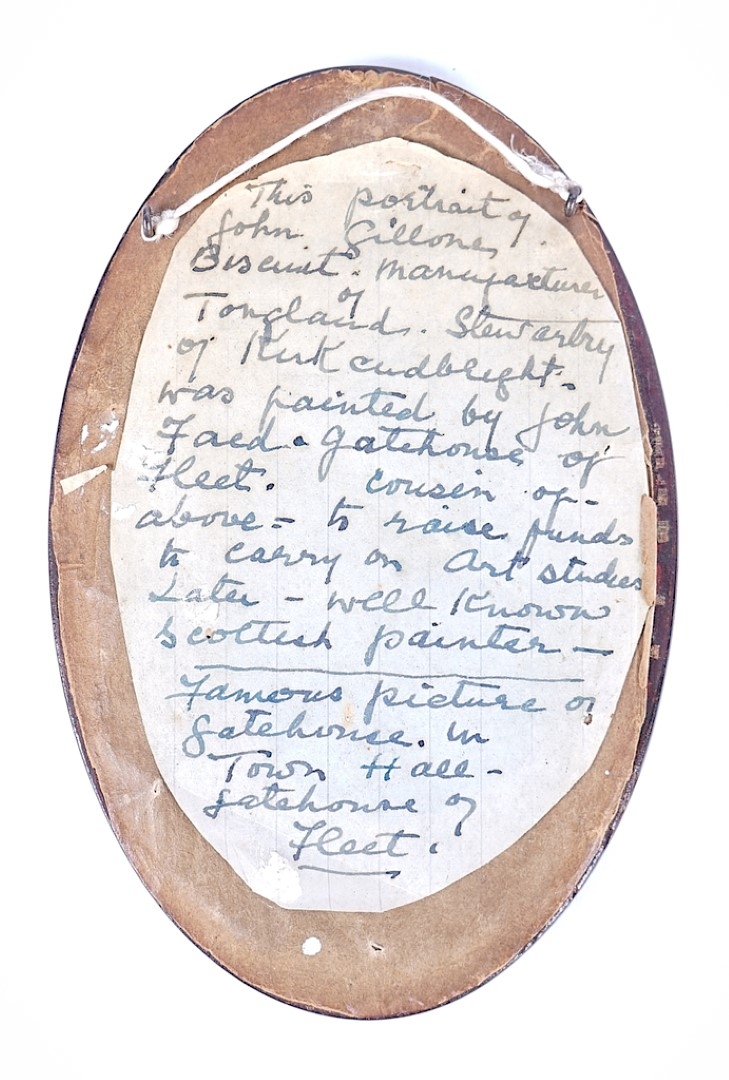 This portrait of
John Gillone,
Biscuit. Manufacturer
of
Tongland. Stewartry
of Kirkcudbright.
was painted by John
Faed. Gatehouse of
Fleet. cousin of-
above- to raise funds
to carry on Art studies
Later - well known
Scottish painter -
Famous picture of
Gatehouse. in
Town Hall-
Gatehouse of
Fleet.